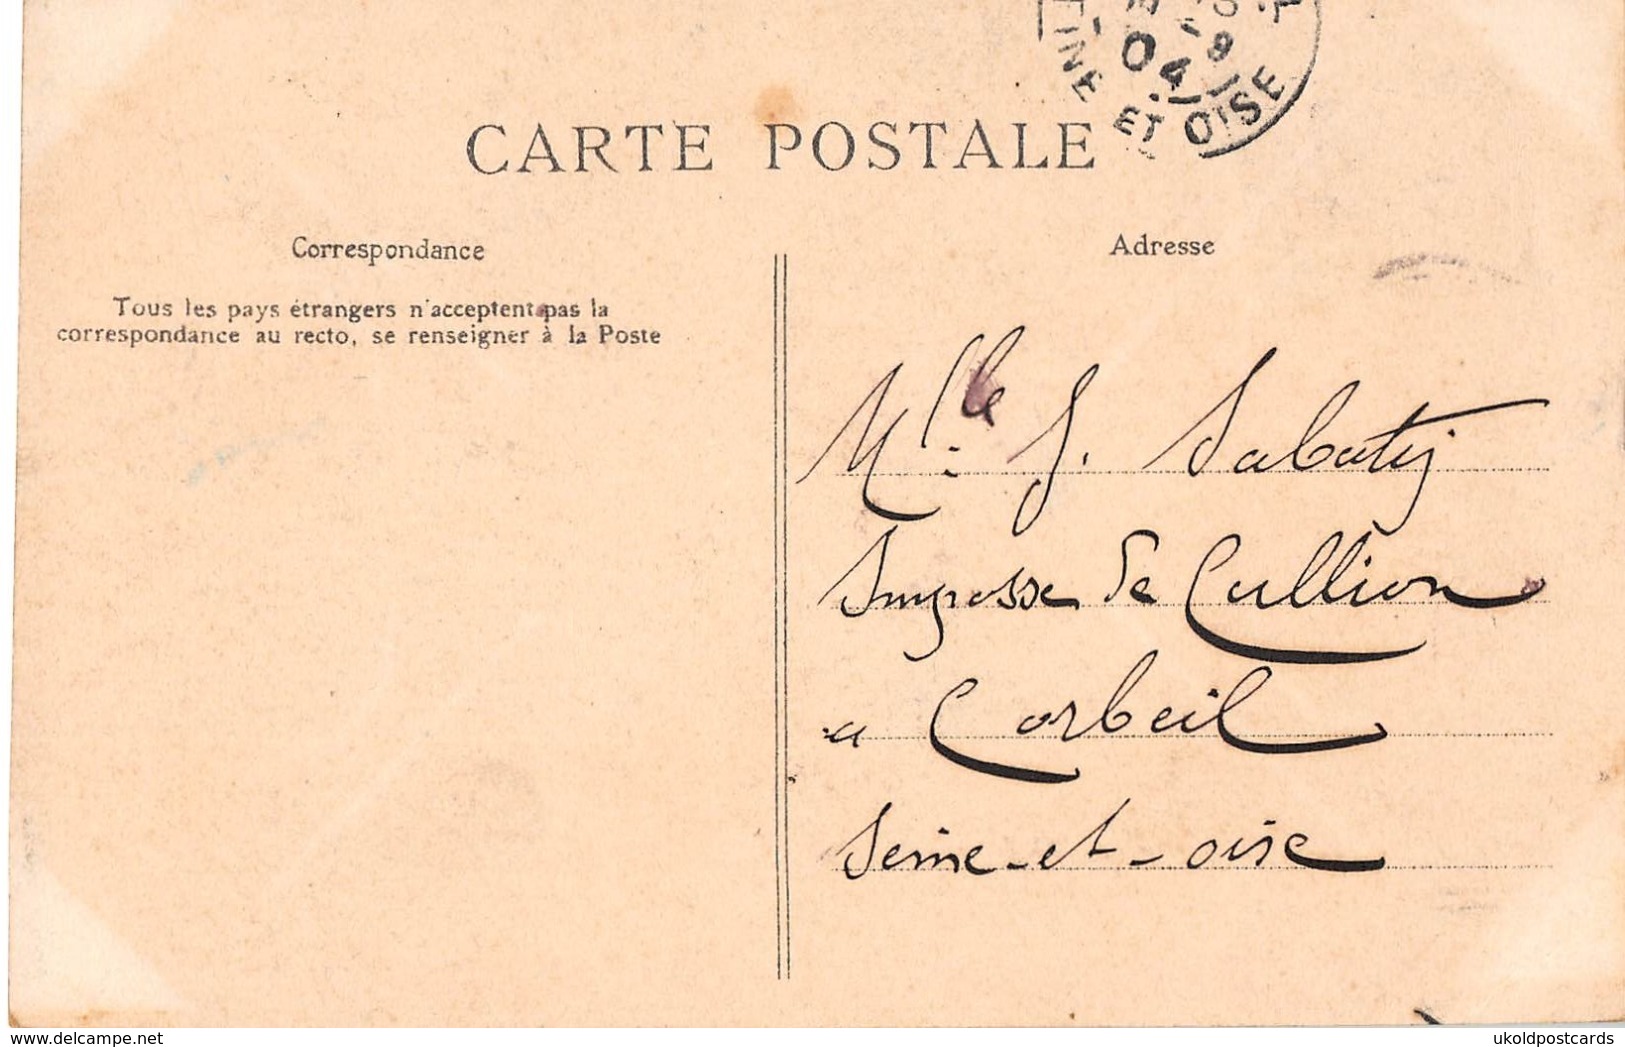 04
EINE ET OISE
CARTE POSTALE
Correspondance
Tous les pays étrangers n'acceptent pas la
correspondance au recto, se renseigner à la Poste
Adresse
Mlle J. Sabatij
Impasse de Cullion
a Corbeil
Seine-et-oise
delcampe.net
ukoldpostcards